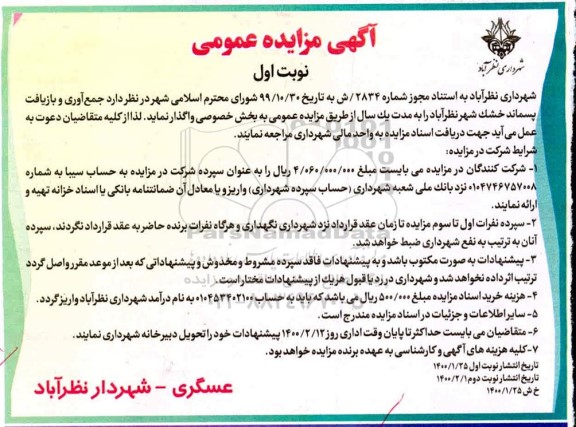 شهرداری نظرآباد
آگهی مزایده عمومی
نوبت اول
شهرداری نظرآباد به استناد مجوز شماره ۲۸۳۴/ش به تاریخ ۹۹/۱۰/۳۰ شورای محترم اسلامی شهر در نظر دارد جمع‌آوری و بازیافت
پسماند خشك شهر نظرآباد را به مدت يك سال از طریق مزایده عمومی به بخش خصوصی واگذار نماید. لذا از کلیه متقاضیان دعوت به
عمل می آید جهت دریافت اسناد مزایده به واحد مالی شهرداری مراجعه نمایند.
شرایط شرکت در مزایده:
۱- شرکت کنندگان در مزایده می بایست مبلغ ۴/۰۶۰/۰۰۰/۰۰۰ ریال را به عنوان سپرده شرکت در مزایده به حساب سیبا به شماره
۰۱۰۴۷۴۶۷۵۷۰۰۸ نزد بانك ملی شعبه شهرداری (حساب سپرده شهرداری) واریز و یا معادل آن ضمانتنامه بانکی یا اسناد خزانه تهیه و
ارائه نمایند.
۲- سپرده نفرات اول تا سوم مزایده تا زمان عقد قرارداد نزد شهرداری نگهداری و هرگاه نفرات برنده حاضر به عقد قرارداد نگردند، سپرده
آنان به ترتیب به نفع شهرداری ضبط خواهد شد.
۳- پیشنهادات به صورت مکتوب باشد و به پیشنهادات فاقد سپرده مشروط و مخدوش و پیشنهاداتی که بعد از موعد مقرر واصل گردد
ترتیب اثر داده نخواهد شد و شهرداری در رد یا قبول هر يك از پیشنهادات مختار است.
۴- هزینه خرید اسناد مزایده مبلغ ۵۰۰/۰۰۰ ریال می باشد که باید به حساب ۰۱۰۴۵۳۴۰۲۱۰۰ به نام درآمد شهرداری نظرآباد واریز گردد.
۵- سایر اطلاعات و جزئیات در اسناد مزایده مندرج است.
۶- متقاضیان می بایست حداکثر تا پایان وقت اداری روز ۱۴۰۰/۲/۱۲ پیشنهادات خود را تحویل دبیرخانه شهرداری نمایند.
۷- کلیه هزینه های آگهی و کارشناسی به عهده برنده مزایده خواهد بود.
تاریخ انتشار نوبت اول ۱۴۰۰/۱/۲۵
تاریخ انتشار نوبت دوم ۱۴۰۰/۲/۱
خ ش ۱۴۰۰/۱/۲۵
عسگری - شهردار نظرآباد